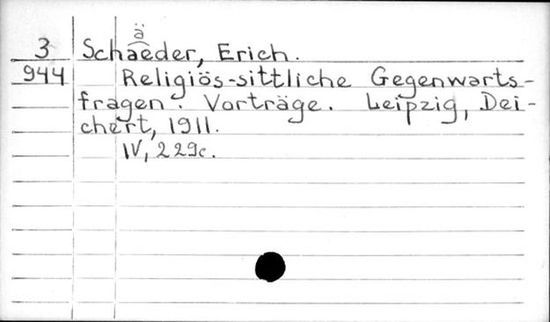 ä
3 Schaeder, Erich.
944 Religiös-sittliche Gegenwarts-
fragen. Vorträge. Leipzig, Dei-
chert, 1911.
IV, 229c.